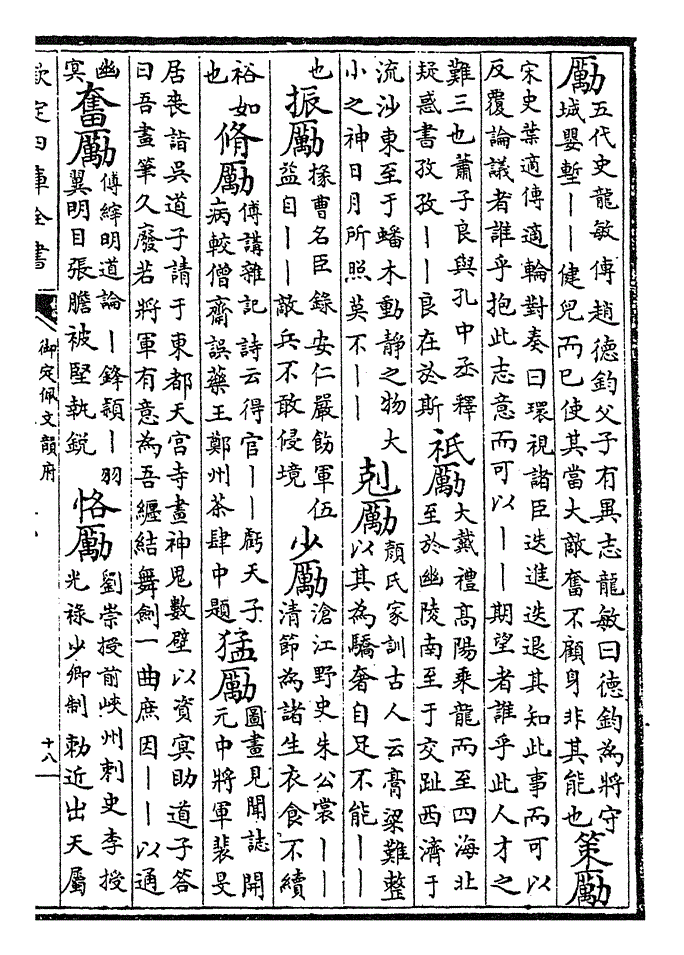 勵
五代史龍敏傳趙德鈞父子有異志龍敏曰德鈞為將守
城嬰塹——健兒而已使其當大敵奮不顧身非其能也
策勵
宋史葉適傳適輪對奏曰環視諸臣迭進迭退其知此事而可以
反覆論議者誰乎抱此志意而可以——期望者誰乎此人才之
難三也蕭子良與孔中丞釋
疑惑書孜孜——良在於斯
祗勵
大戴禮高陽乘龍而至四海北
至於幽陵南至于交趾西濟于
流沙東至于蟠木動靜之物大
小之神日月所照莫不——
剋勵
顏氏家訓古人云膏粱難整
以其為驕奢自足不能——
也
振勵
掾曹名臣錄安仁嚴飭軍伍
益自——敵兵不敢侵境
少勵
滄江野史朱公裳——
清節為諸生衣食不續
裕如
也
脩勵
傅講雜記詩云得官——虧天子
病較僧齋誤藥王鄭州茶肆中題
猛勵
圖畫見聞誌開
元中將軍裴旻
居喪詣吳道子請于東都天宮寺畫神鬼數壁以資冥助道子答
曰吾畫筆久廢若將軍有意為吾纏結舞劍一曲庶因——以通
幽
冥
奮勵
傅縡明道論—鋒穎—羽
翼明目張膽被堅執銳
恪勵
劉崇授前峽州刺史李授
光祿少卿制勅近出天屬
欽定四庫全書
御定佩文韻府
十八